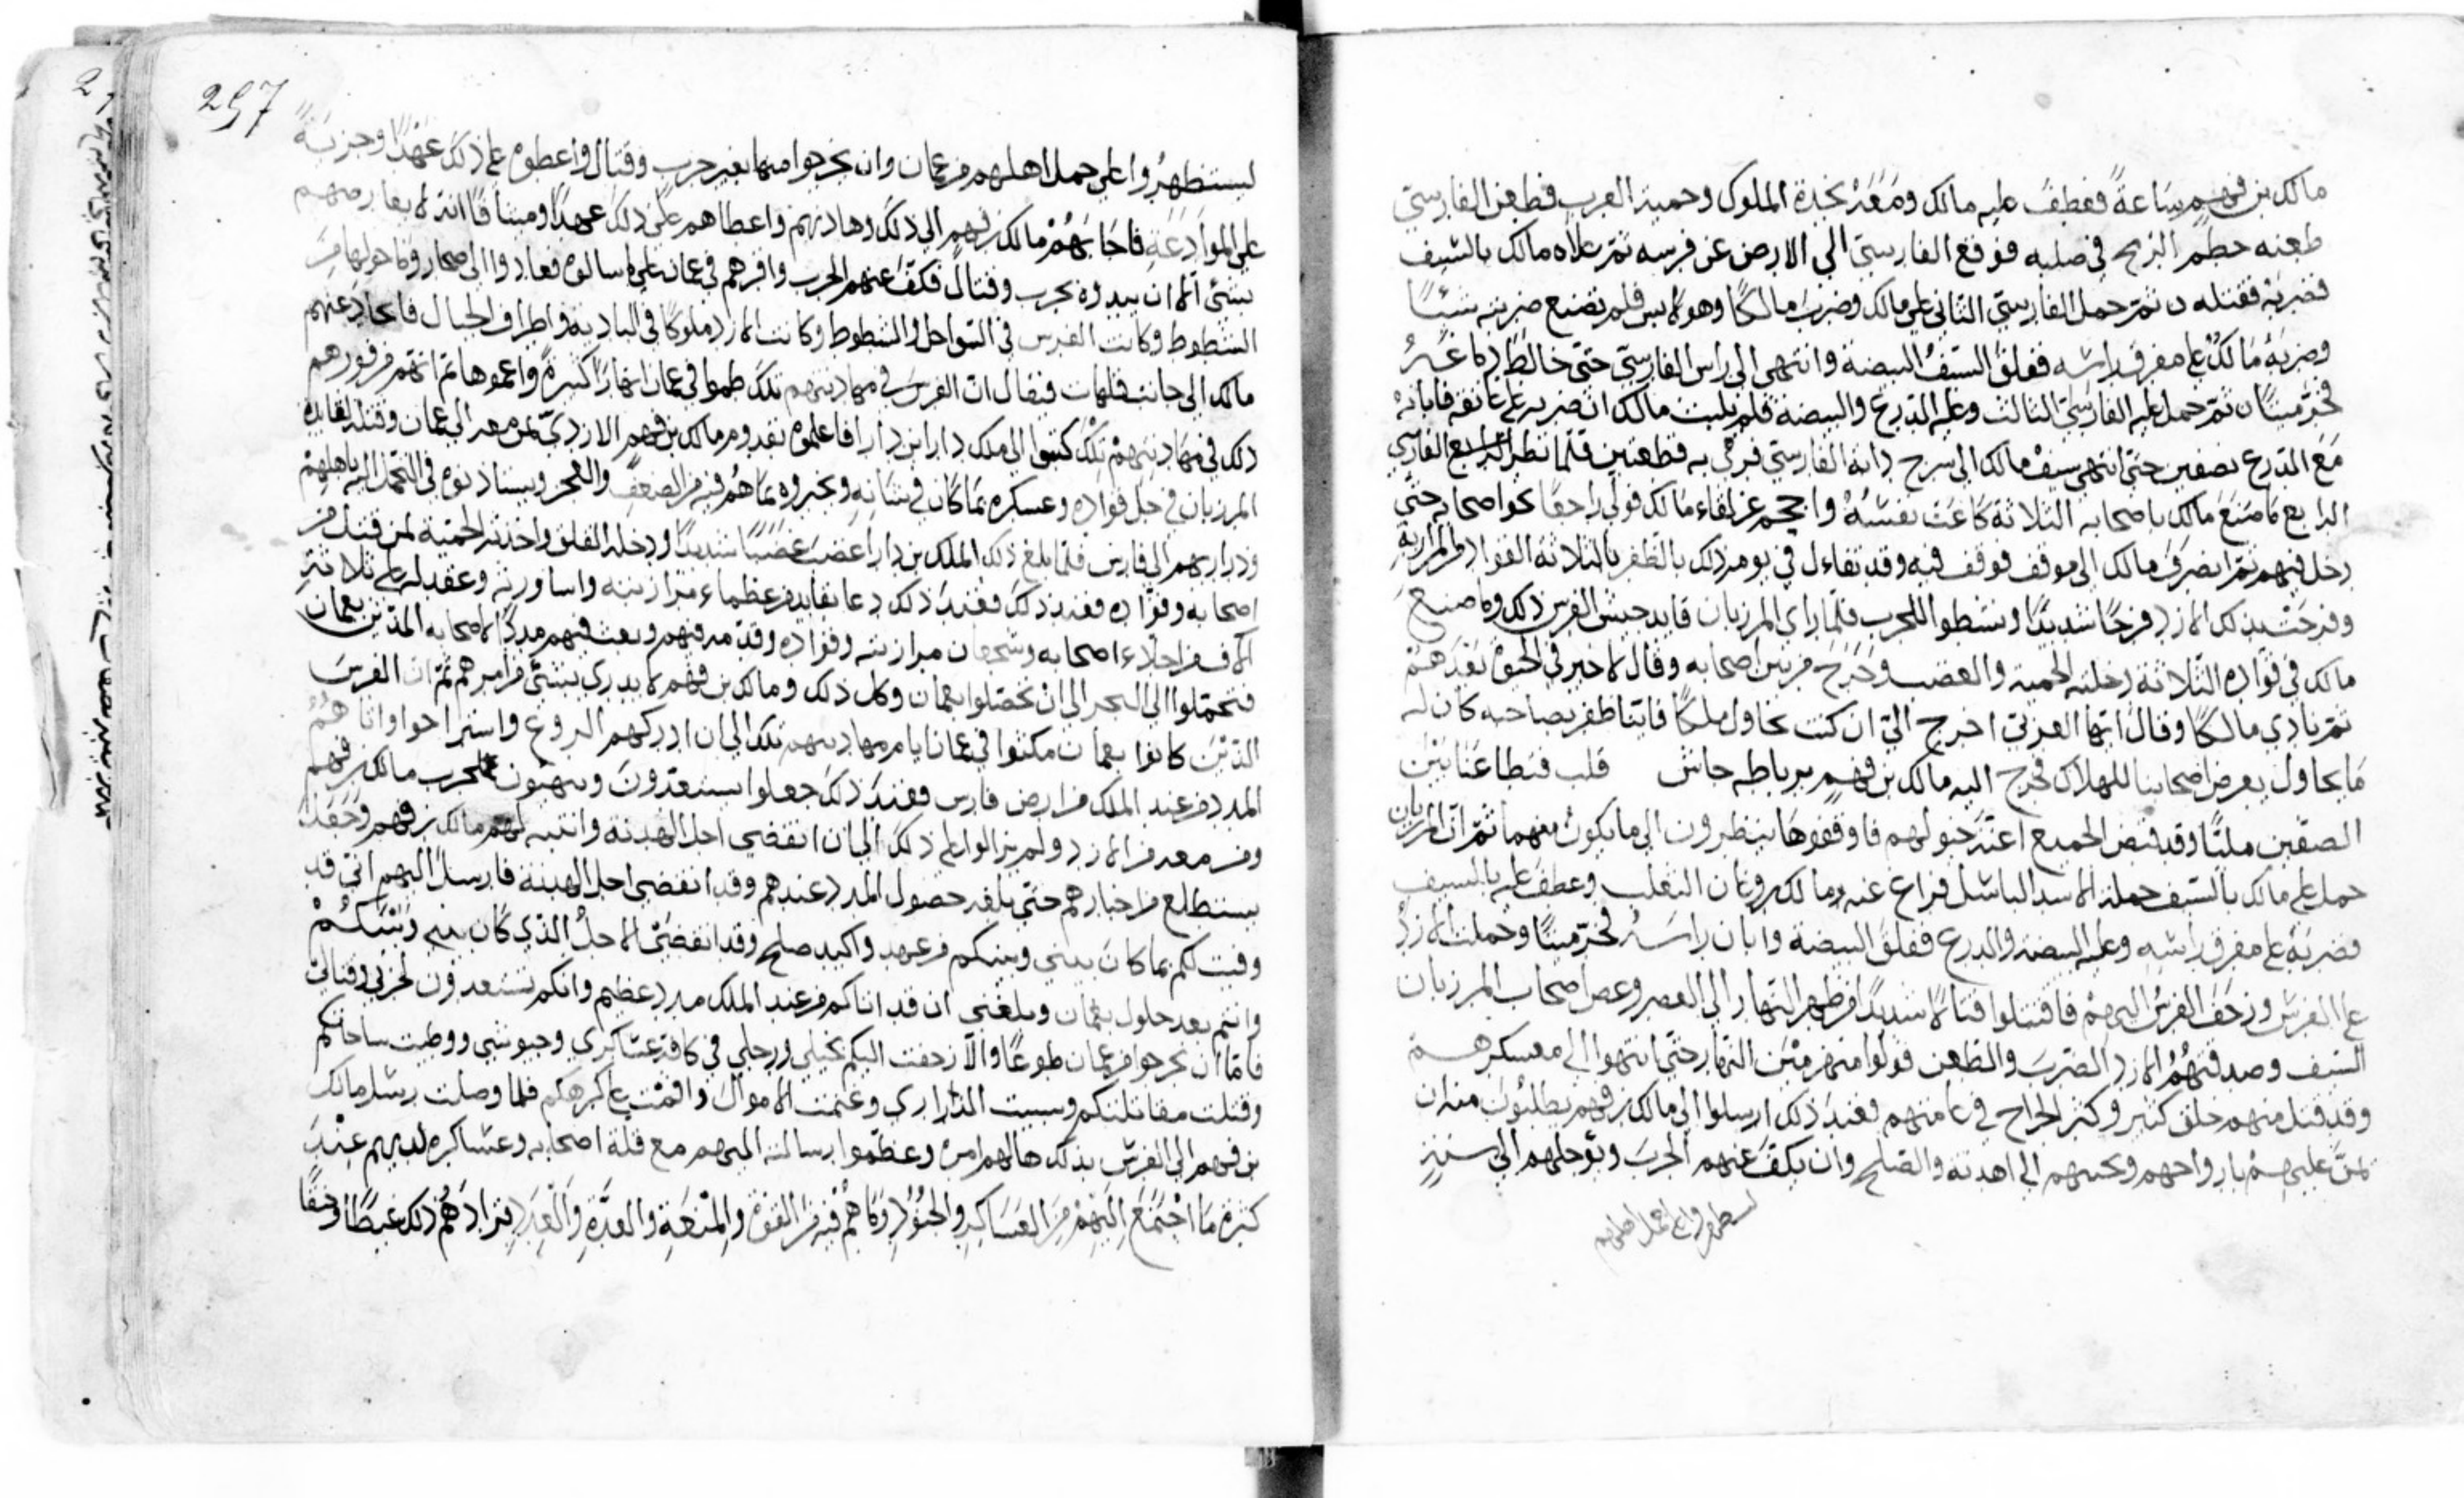 مالك بن فهم ساعةً فعطف عليه مالك ومَعَهُ نجدة الملوك وحمية العرب فطعن الفارسيّ
طعنه حطم الرمح في صلبه فوقع الفارسيّ الي الارض عن فرسه ثمّ علاه مالك بالسّيف
فضربه فقتله ن ثمّ حمل الفارسيّ الثاني علي مالك وضربَ مالكًا وهو لابس فلم تصنع ضربته شيًا
وضربهُ مَالكُ علي مفرق راسه ففلقَ السّيفُ البيضة وانتهي الي راس الفارسيّ حتّي خالط دماغَهُ
فخرّ ميّتًا ن ثمّ حمل عليه الفارسيّ الثالث وعليه الدّرع والبيضة فلم يلبث مالك ان ضربه علي عاتقه فابانهُ
مَعَ الدّرع نصفين حتي انتهي سيف مالك الي سرج دابة الفارسيّ فرمي به قطعتين فلمّا نظر الرابع الفارسي
الرابع ما صَنعَ مالك باصحابه الثلاثة كاعَت نفسُهُ واحجم عن لقاء مالك فولي راجعًا نحو اصحابه حتّي
دخل فيهم ثمّ انصرفَ مالك الي موقفه فوقف فيه وقد تفاءل في يومه ذلك بالظفر بالثلاثة القواد المرازبة
وفرحَت بذلك الازد فرحًا شديدًا ونشطوا للحرب فلمّا راي المرزبان قايد جيش الفرس ذلك وما صنعَ
مالك في قوّاده الثلاثة دخلته الحمية والغضب وخَرَجَ من بين اصحابه وقال لا خير في الحيوة بَعدَهُمْ
ثمّ نادي مالكًا وقال ايّها العربيّ اخرج اليّ ان كنت تحاول ملكًا فايّنا ظفر بصاحبه كان له
مَا يحاول ولا نعرض اصحابنا للهلاك فخرج اليه مالك بن فهم برباطه جاش قلب فتطاعنا بَيْن
الصفّين مليًّا وقد قبض الجميع اعنّة خيولهم فاوقفوهَا ينظرون الي ما يكون منهما ثمّ انّ المرزبان
حمل علي مالك بالسّيف حملة الاسد الباسل فراغ عنه مالك روغان الثعلب وعطف عليه بالسيف
فضربَهُ علي مفرق راسِهِ وعليه البيضة والدرع ففلقَ البيضة وابان راسَهُ فخرّ ميّتًا وحملت الازدُ
علي الفرسِ وزحَفَ الفرسُ اليهمْ فاقتتلوا قتالًا شديدًا من ظهر النّهار الي العصر وعض اصحاب المرزبان
السّيف وصدقتهُمُ الازد الضّربَ والطّعن فولوا منهزمين النّهار حتّي انتهوا الي معسكرهم
وقد قتل منهم خلق كثير وكثر الجراح في عامتهم فعندَ ذلك ارسلوا الي مالك بن فهم يطلبُونَ منه ان
يمنّ عليهمْ بارواحهم ويجيبهم الي الهدنة والصّلح وان يكفّ عنهم الحربَ ويؤجلهم الي سنةٍ
ليستظهروا علي حمل اهلهم
257
ليستظهِرُوا علي حمل اهلهم من عمان وان يخرجوا منها بغير حرب وقتال واعطوهُ علي ذلك عَهْدًا وجزيَةً
علي الموادَعَةِ فاجَابَهُمْ مالك بن فهم الي ذلك وهادنهم واعطاهم علي ذلك عهدًا وميثاقًا انّه لا يعارضهم
بشيءٍ الا ان يبدوه بحرب وقتال فكفّ عنهم الحرب واقرهم في عمان علي ما سالوهُ فعادوا الي صحار وما حولها مِنَ
الشطوط وكانت الفرس في السّواحل والشطوط وكانت الازد ملوكًا في البادية واطراف الجبال فانحازَ عنهم
مالك الي جانب قلهات فيقال انّ الفرسَ في مهادنتهم تلك طموا في عمان انهارًا كثيرة واعموها ثمّ انّهم من فورهم
ذلك في مهادنتهمْ تلْك كتبوا الي ملك دارا بن دارا فاعلموهُ بقدوم مالك بن فهم الازديّ بمن معه الي عمان وقتله لقايده
المرزبان في جل قواده وعسكره بمَا كان في شانِهِ ونخبروه بمَا هُم فيهِ من الضّعفِ والعجز ويستاذنوهُ في التّحمّل اليه باهلهِمْ
وذراريهم الي فارس فلمّا بلغ ذلك الملك بن دارا غضبَ غضَبًا شديدًا ودخله القلق واخذته الحميّة لمن قتل من
اصحابه وقوّاده فعند ذلكَ فعندَ ذلك دعا بقايد من عظماء مرازبته واساورته وعقد له علي ثلاثة
الاف من اجلاء اصحابه وشجعان مرازبته وقواده وقدّمه فيهم وبعث فيهم مددًا لاصحابه الذين بعُمان
فتحمّلوا الي البحر الي ان تحصّلوا بعمان وكل ذلك ومالك بن فهم لا يدري بشيءٍ من امرهم ثمّ ان الفرسَ
الذّيْنَ كانوا بعمان مكثوا في عمان ايام مهادنتهم تلك الي ان ادركهم الروع واستراحوا واتاهُمُ
المدد من عند الملك من ارض فارس فعندَ ذلكَ جعلوا يستعدّونَ ويتهيّون لحرب مالك بن فهم
ومن معه من الازد ولم يزالوا علي ذلكَ الي ان انقضي اجل الهدنة وانتبه لهم مالك بن فهم وَجَعَلَ
يستطلع من اخبارهم حتي بلغه حصول المدد عندهم وقد انقضي اجل الهدنة فارسل اليهم انّي قد
وفيت لكم بما كان بيني وبينكم من عهد واكيد صلح وقد انقضَي الاجلُ الّذي كان بيني وَبَيْنَكُمْ
وانتم بعد حلول بعُمان وبلغني ان قد اتاكم من عند الملك مدد عظيم وانكم تستعدّون لحربي وقتالي
فامّا ان تخرجوا من عمان طوعًا والّا زحفت اليكم بخيلي ورجلي في كافة عساكري وجيوشي ووطيت ساحاتكم
وقتلت مقاتلتكم وسبيت الذّراري وغنمت الاموالَ واقمْت علي كرهكم فلما وصلت رسل مالك
بن فهم الي الفرس بذلك هالهم امرهُ وعظّموا رسالته اليهم مع قلة اصحابه وعساكره لديهم عِنْدَ
كثرةِ مَا اجْتَمَعَ اِلَيْهِمْ مِنَ العَسَاكِرِ والجنُوُدِ وَمَا هُمْ فيهِ منَ القوّة والمنْعَةِ والعِدّةِ وَالْعَدَدِ فزَادَهُمْ ذلك غيظًا وحنقًا